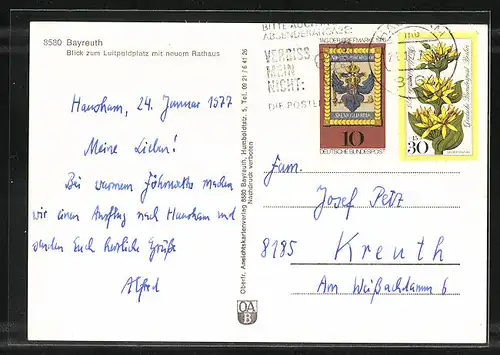 8580 Bayreuth
Blick zum Luitpoldplatz mit neuem Rathaus
Hausham, 24. Januar 1977
Meine Lieben!
Bei warmem Föhnwetter machen
wir einen Ausflug nach Hausham und
senden Euch herzliche Grüße
Alfred
Oberfr. Ansichtskartenverlag 8580 Bayreuth, Humboldtstr. 5, Tel. 09 21 / 6 41 26
Nachdruck verboten
OA
B
ABSENDERANGABE
VERGISS
MEIN
NICHT:
DIE POSTLEI
TAG DER BRIEFMARKE 1976
10
DEUTSCHE BUNDESPOST
Deutsche Bundespost Berlin
30
Fam.
Josef Petz
8185 Kreuth
Am Weißachdamm 6